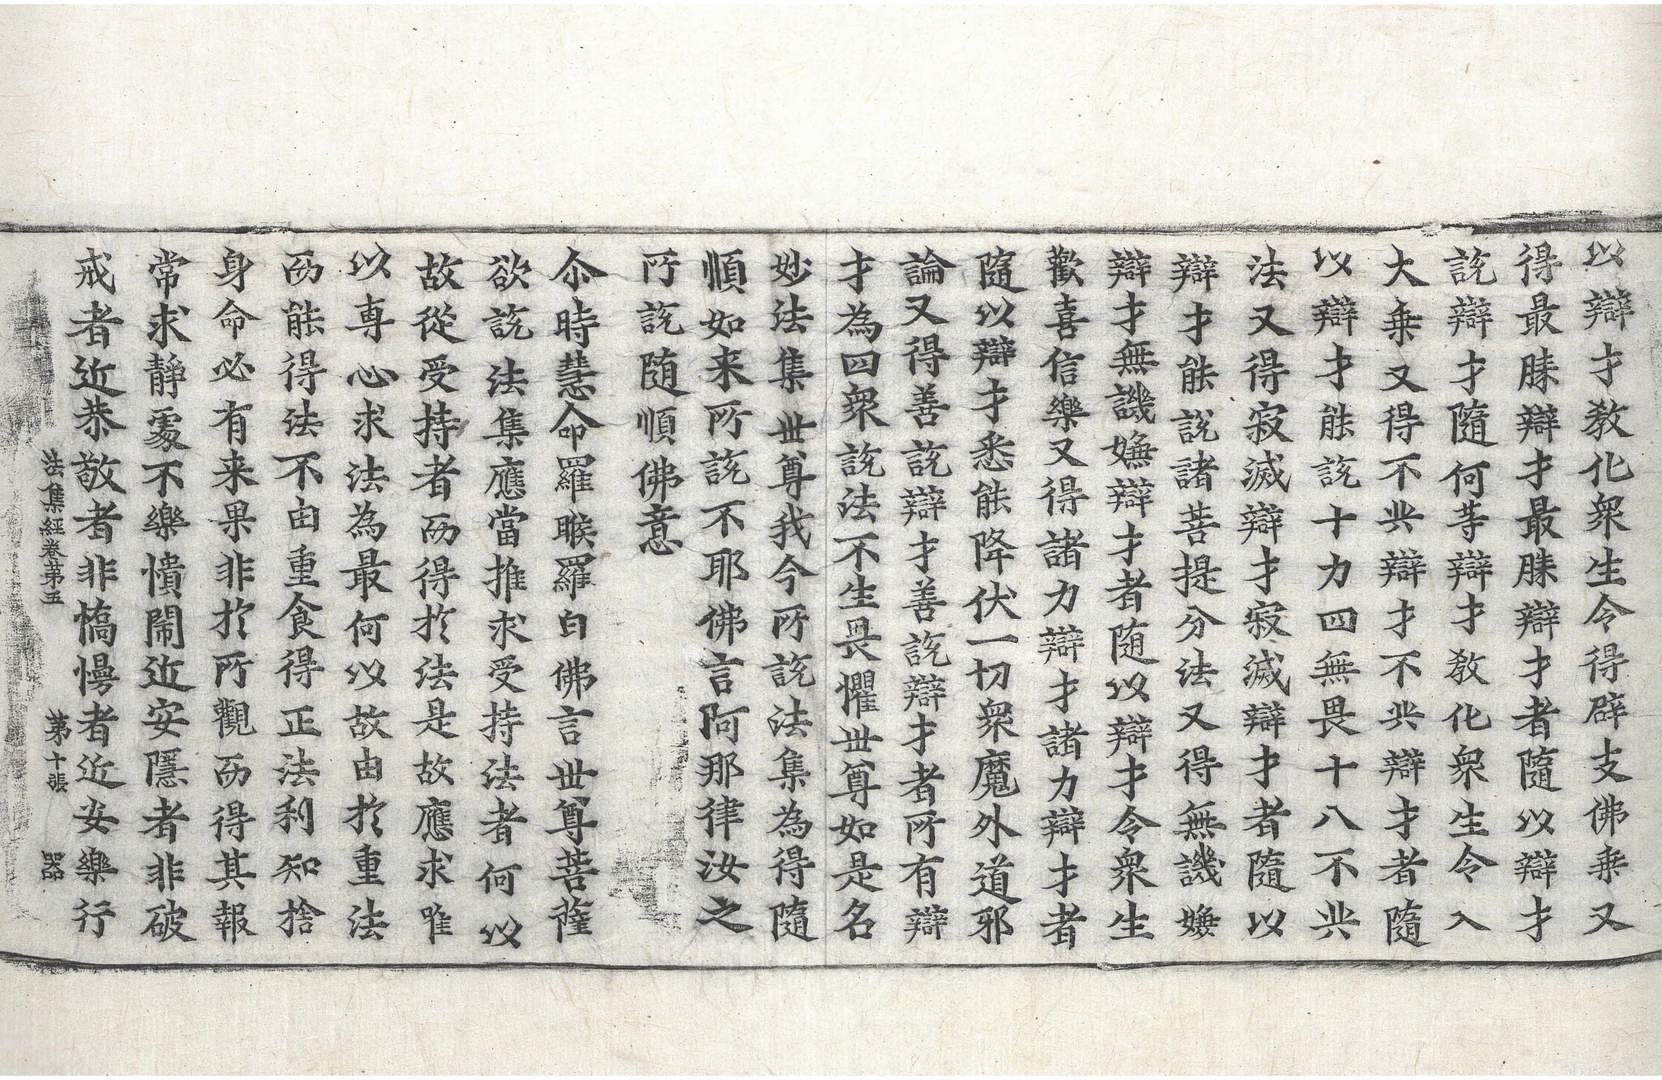 以辯才教化衆生令得辟支佛乗又
得最勝辯才最勝辯才者隨以辯才
說辯才隨何等辯才教化衆生令入
大乗又得不共辯才不共辯才者隨
以辯才能說十力四無畏十八不共
法又得寂滅辯才寂滅辯才者隨以
辯才能說諸菩提分法又得無譏嫌
辯才無譏嫌辯才者随以辯才令衆生
歡喜信樂又得諸力辯才諸力辯才者
隨以辯才悉能降伏一切衆魔外道邪
論又得善說辯才善說辯才者所有辯
才為四衆說法不生畏懼世尊如是名
妙法集世尊我今所說法集為得隨
順如来所說不耶佛言阿那律汝之
所說随順佛意
尒時慧命羅睺羅白佛言世尊菩薩
欲說法集應當推求受持法者何以
故從受持者而得於法是故應求唯
以専心求法為最何以故由於重法
而能得法不由重食得正法利知捨
身命必有来果非於所觀而得其報
常求靜處不樂憒閙近安隱者非破
戒者近恭敬者非憍慢者近安樂行
法集経卷第五　第十張　器